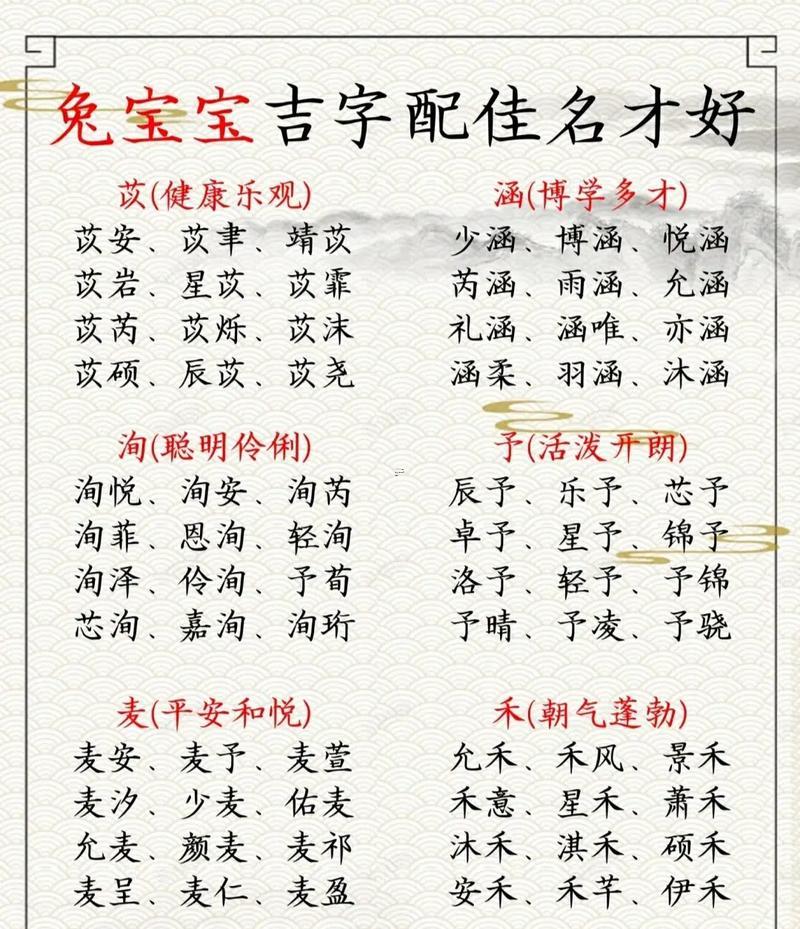 兔宝宝吉字配佳名才好
苡(健康乐观)
苡安、苡聿、靖苡
苡岩、星苡、苡霏
苡芮、苡烁、苡沫
苡硕、辰苡、苡尧
涵(博学多才)
少涵、博涵、悦涵
芮涵、雨涵、允涵
礼涵、涵唯、亦涵
涵柔、羽涵、沐涵
洵(聪明伶俐)
洵悦、洵安、洵芮
洵菲、恩洵、轻洵
洵泽、伶洵、予荀
芯洵、嘉洵、洵珩
予(活泼开朗)
辰予、乐予、芯予
卓予、星予、锦予
洛予、轻予、予锦
予晴、予凌、予骁
麦(平安和悦)
麦安、麦予、麦萱
麦汐、少麦、佑麦
允麦、颜麦、麦祁
麦呈、麦仁、麦盈
禾(朝气蓬勃)
允禾、禾风、景禾
禾意、星禾、萧禾
沐禾、淇禾、硕禾
安禾、禾芊、伊禾